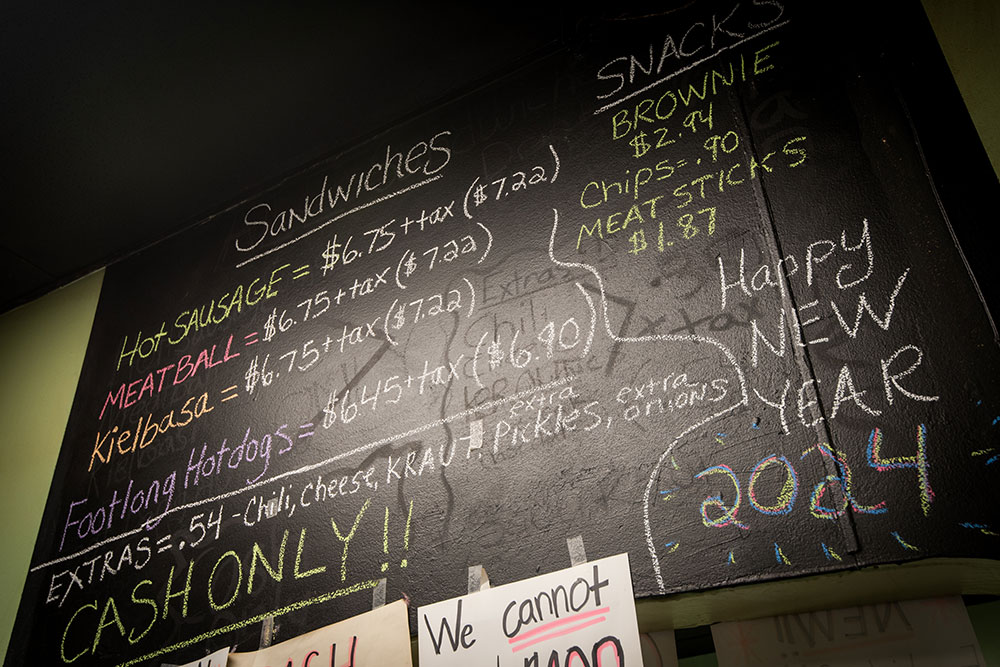 Sandwiches
Hot SAUSAGE = $6.75 + tax ($7.22)
MEATBALL = $6.75 + tax ($7.22)
Kielbasa = $6.75 + tax ($7.22)
Footlong Hotdogs = $6.45 + tax ($6.90)
EXTRAS = .54 - Chili, Cheese, KRAUT, extra Pickles, extra onions
CASH ONLY!!
SNACKS
BROWNIE
$2.94
Chips = .90
MEAT STICKS
$1.87
Happy
NEW
YEAR
2024
Extras
Chili
x tax
We cannot
NEW!